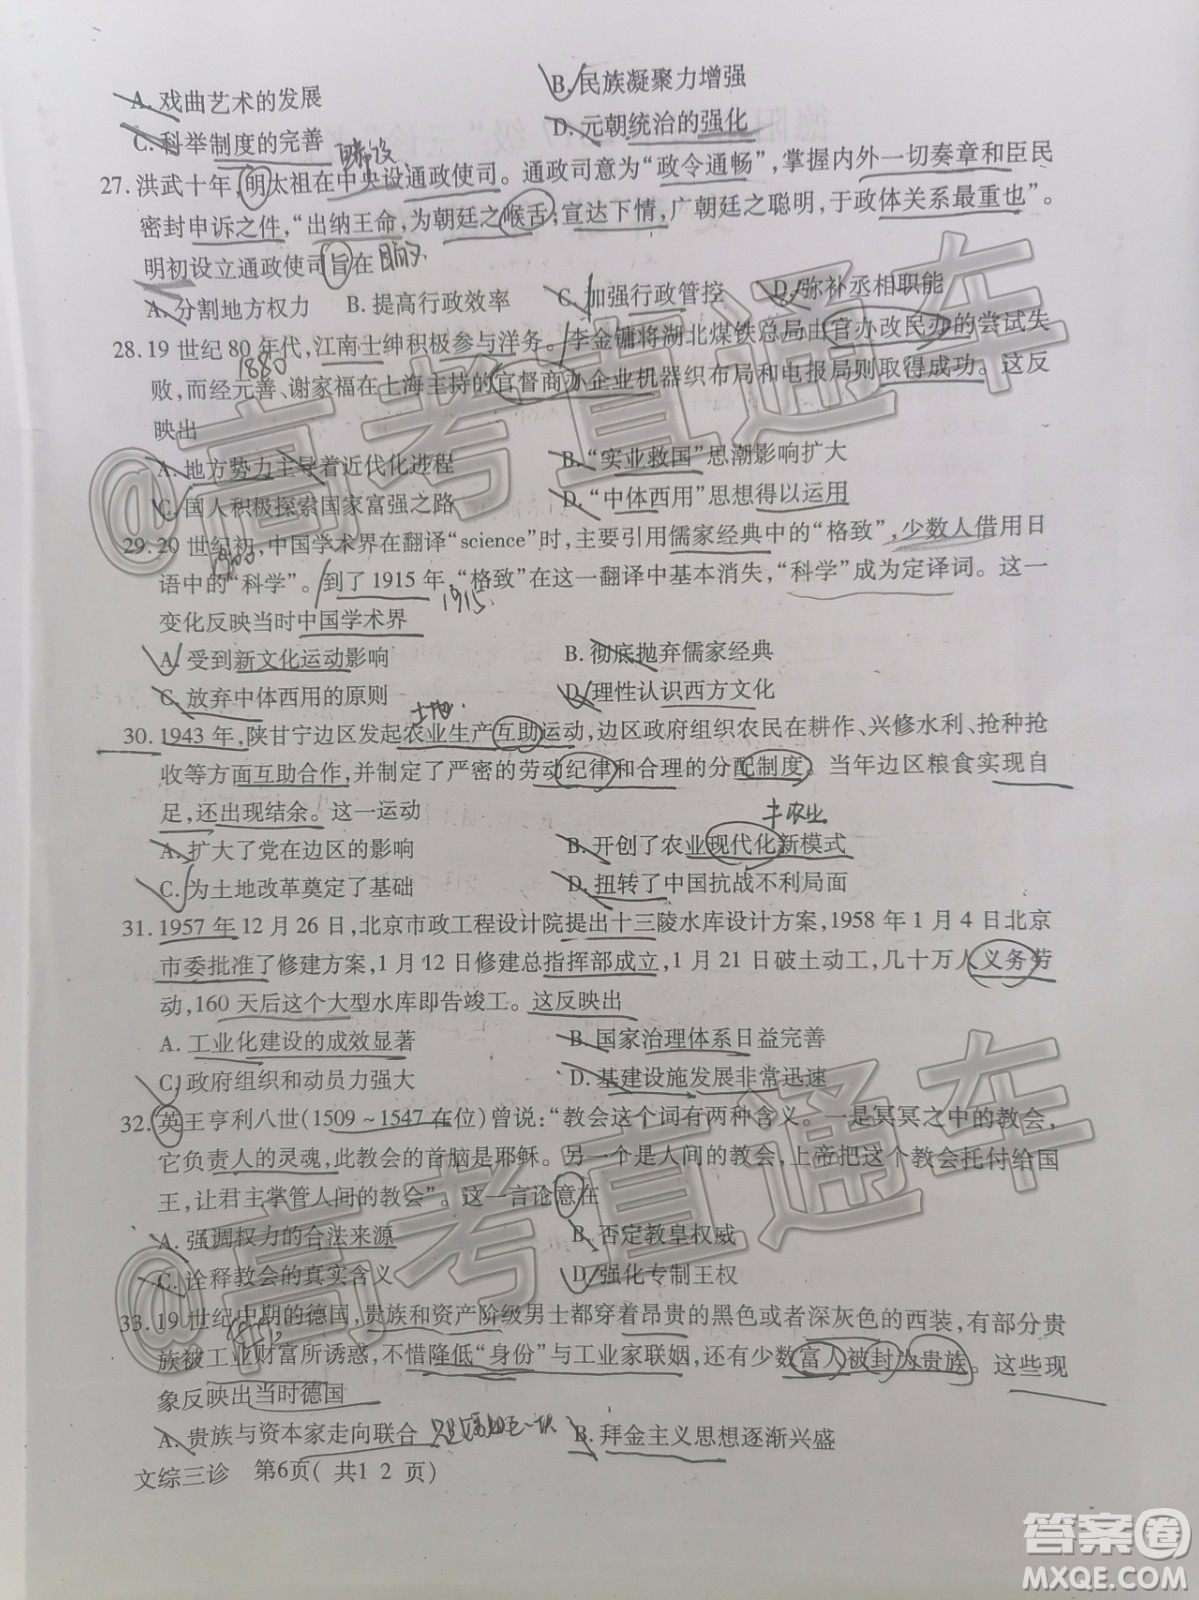 A. 戏曲艺术的发展 B. 民族凝聚力增强
C. 科举制度的完善 D. 元朝统治的强化
27. 洪武十年,明太祖在中央设通政使司。通政司意为“政令通畅”,掌握内外一切奏章和臣民
密封申诉之件,“出纳王命,为朝廷之喉舌;宣达下情,广朝廷之聪明,于政体关系最重也”。
明初设立通政使司旨在 目的
A. 分割地方权力 B. 提高行政效率 C. 加强行政管控 D. 弥补丞相职能
28. 19 世纪 80 年代,江南士绅积极参与洋务。李金镛将湖北煤铁总局由官办改民办的尝试失
1880
败,而经元善、谢家福在上海主持的官督商办企业机器织布局和电报局则取得成功。这反
映出
A. 地方势力主导着近代化进程 B. “实业救国”思潮影响扩大
C. 国人积极探索国家富强之路 D. “中体西用”思想得以运用
29. 20 世纪初,中国学术界在翻译“science”时,主要引用儒家经典中的“格致”,少数人借用日
1900
语中的“科学”。到了 1915 年,“格致”在这一翻译中基本消失,“科学”成为定译词。这一
1915
变化反映当时中国学术界
A. 受到新文化运动影响 B. 彻底抛弃儒家经典
C. 放弃中体西用的原则 D. 理性认识西方文化
土地
30. 1943 年,陕甘宁边区发起农业生产互助运动,边区政府组织农民在耕作、兴修水利、抢种抢
收等方面互助合作,并制定了严密的劳动纪律和合理的分配制度。当年边区粮食实现自
足,还出现结余。这一运动
A. 扩大了党在边区的影响 B. 开创了农业现代化新模式
C. 为土地改革奠定了基础 D. 扭转了中国抗战不利局面
31. 1957 年 12 月 26 日,北京市政工程设计院提出十三陵水库设计方案,1958 年 1 月 4 日北京
市委批准了修建方案,1 月 12 日修建总指挥部成立,1 月 21 日破土动工,几十万人义务劳
动,160 天后这个大型水库即告竣工。这反映出
A. 工业化建设的成效显著 B. 国家治理体系日益完善
C. 政府组织和动员力强大 D. 基建设施发展非常迅速
32. 英王亨利八世(1509~1547 在位)曾说:“教会这个词有两种含义。一是冥冥之中的教会,
它负责人的灵魂,此教会的首脑是耶稣。另一个是人间的教会,上帝把这个教会托付给国
王,让君主掌管人间的教会”。这一言论意在
A. 强调权力的合法来源 B. 否定教皇权威
C. 诠释教会的真实含义 D. 强化专制王权
33. 19 世纪中期的德国,贵族和资产阶级男士都穿着昂贵的黑色或者深灰色的西装,有部分贵
族被工业财富所诱惑,不惜降低“身份”与工业家联姻,还有少数富人被封为贵族。这些现
象反映出当时德国
A. 贵族与资本家走向联合 B. 拜金主义思想逐渐兴盛
文综三诊 第6页( 共1 2 页)
@高考直通车
@高考直通车
答案圈
MXQE.COM